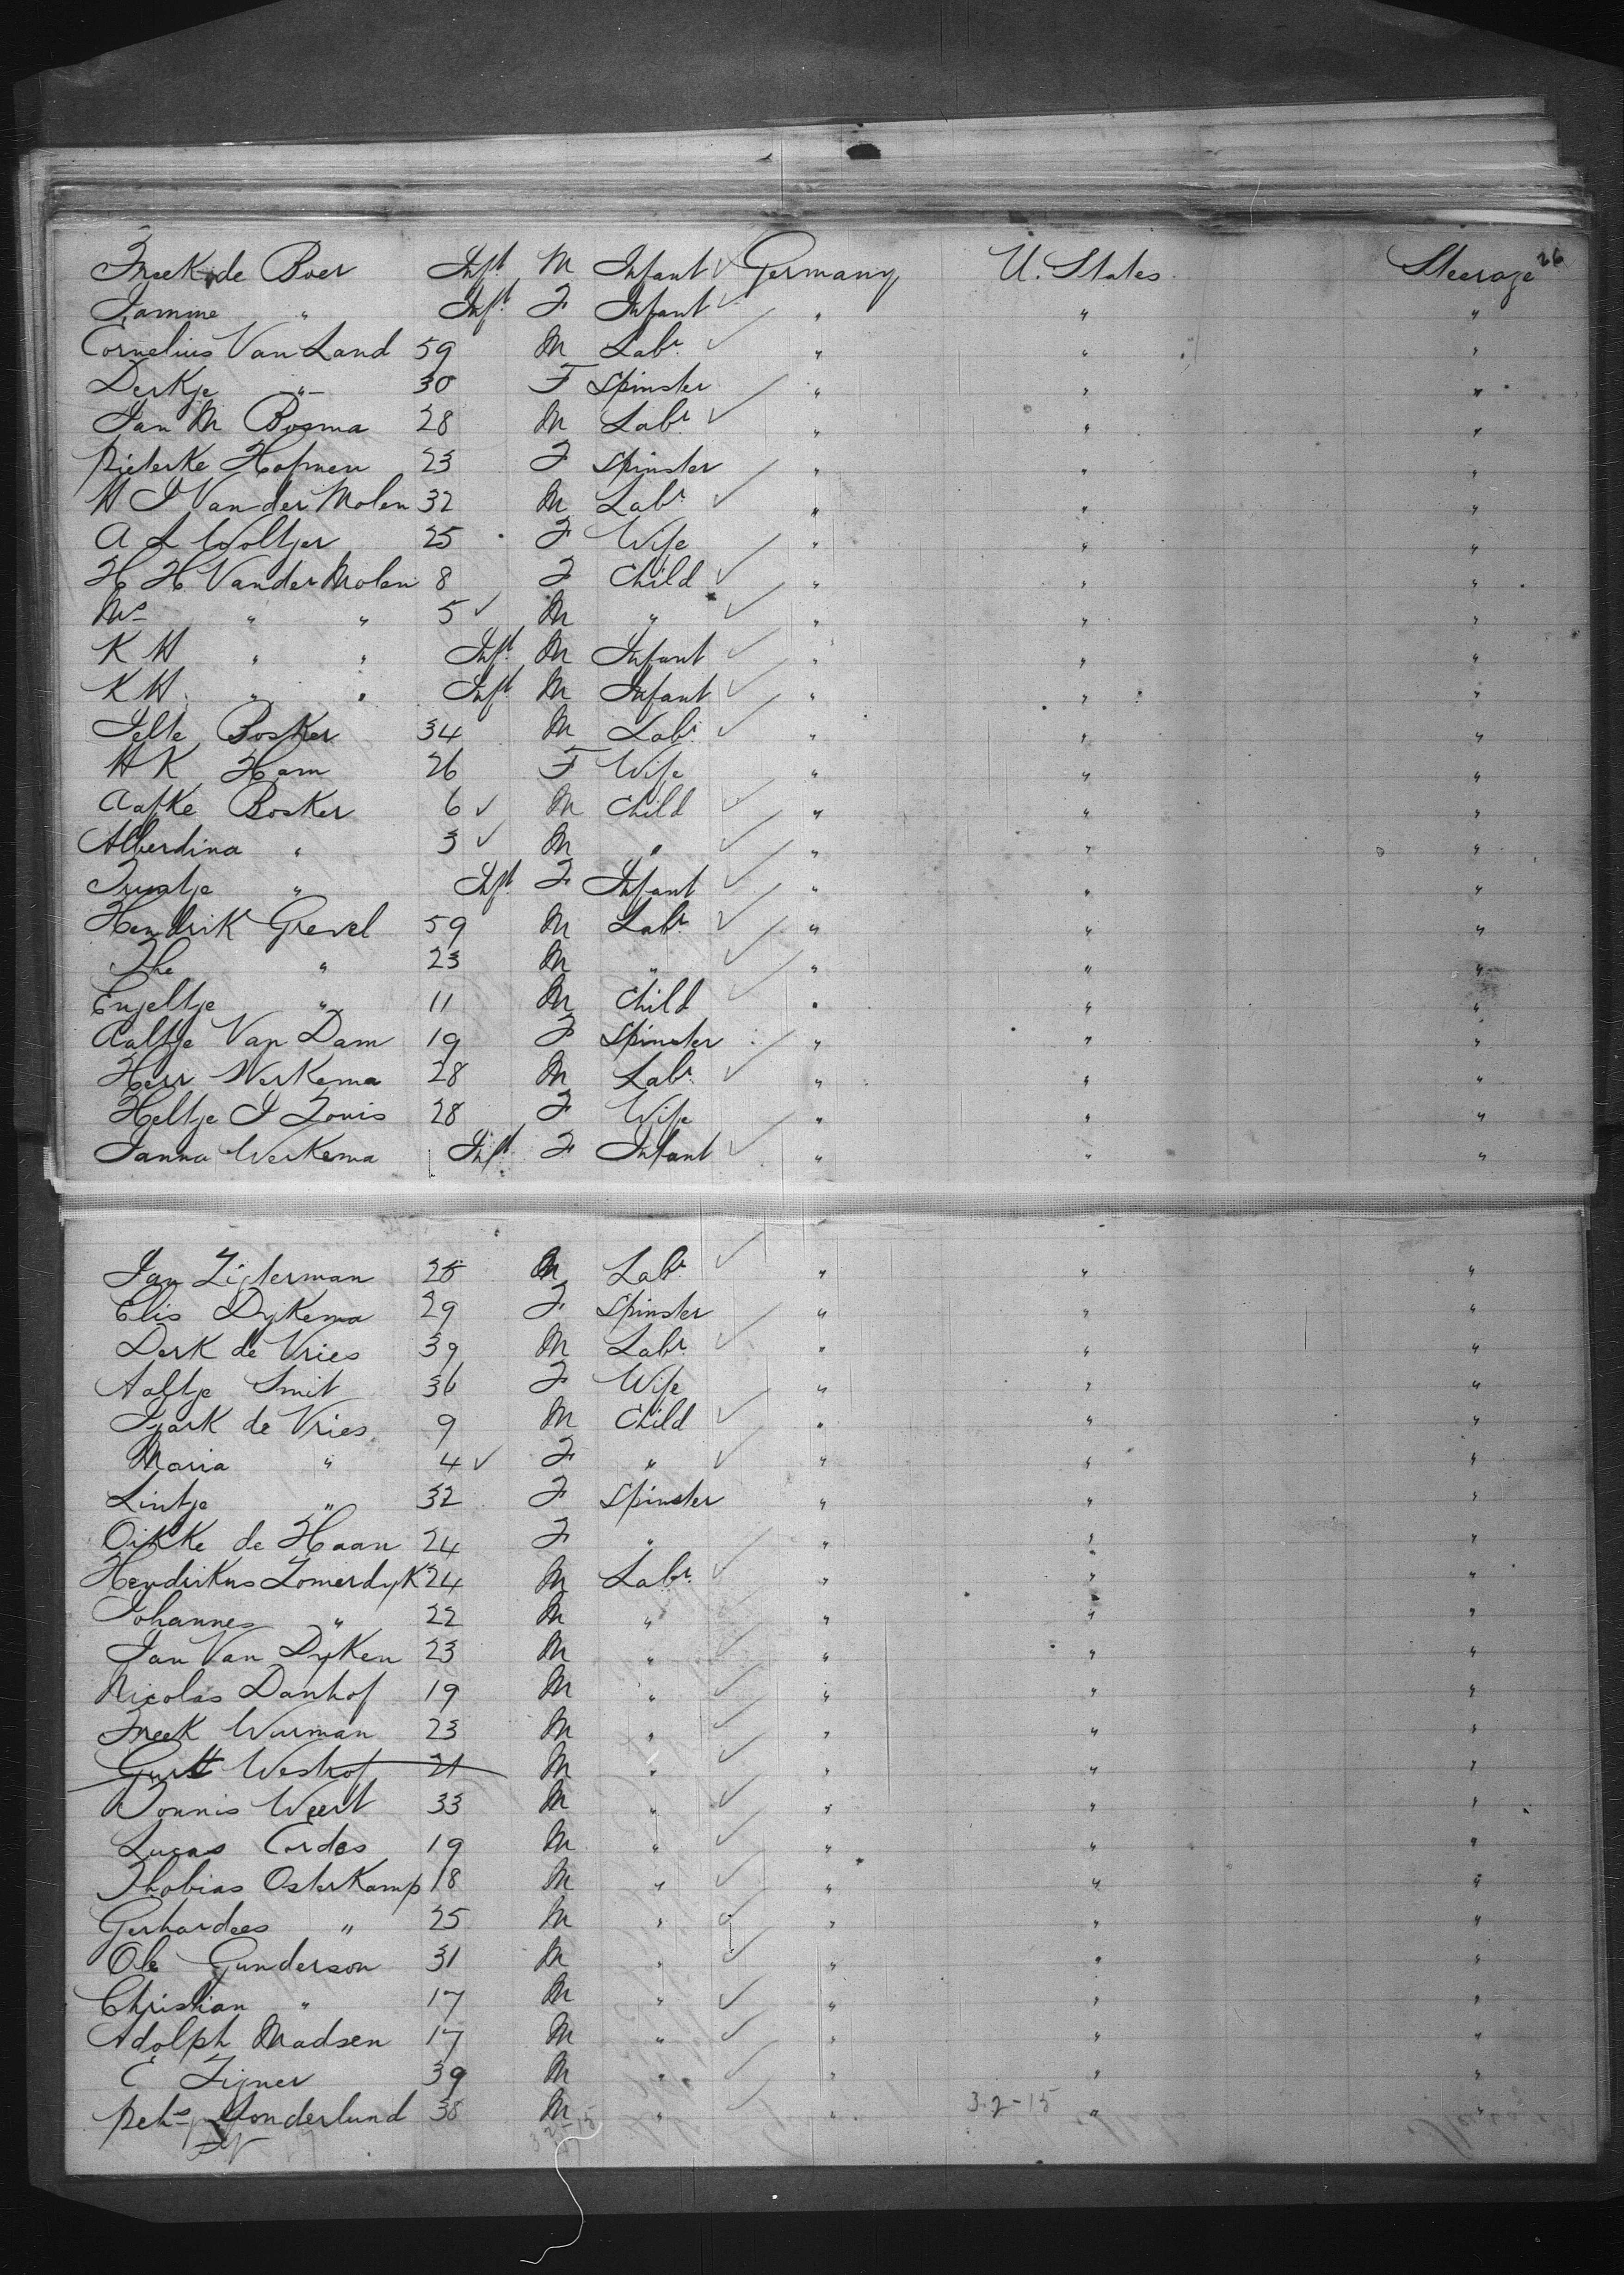 Freek de Boer Inft M Infant ✓ Germany U. States Steerage 26
Jamme " Inft F Infant ✓ " " "
Cornelius Van Land 59 M Labr ✓ " " "
Derkje " 30 F Spinster " " "
Jan M Bosma 28 M Labr ✓ " " "
Pieterke Hofmen 23 F Spinster " " "
H J Van der Molen 32 M Labr ✓ " " "
A L Woltjer 25 F Wife " " "
H H Van der Molen 8 F Child ✓ " " "
Ms " " 5 ✓ M " ✓ " " "
K H " " Inft M Infant ✓ " " "
K H " " Inft M Infant ✓ " " "
Jelte Bosker 34 M Labr ✓ " " "
H K Ham 26 F Wife " " "
Aafke Bosker 6 ✓ M Child ✓ " " "
Alberdina " 3 ✓ M " ✓ " " "
Truatje " Inft F Infant ✓ " " "
Hendrik Grevel 59 M Labr ✓ " " "
The " 23 M " ✓ " " "
Enjeltje " 11 M Child ✓ " " "
Aaltje Van Dam 19 F Spinster " " "
Herr Werkema 28 M Labr ✓ " " "
Heltje J Zouis 28 F Wife " " "
Janna Werkema Inft F Infant ✓ " " "
Jan Zijterman 28 M Labr ✓ " " "
Elis Dykema 29 F Spinster " " "
Derk de Vries 39 M Labr ✓ " " "
Aaltje Smit 36 F Wife " " "
Tjark de Vries 9 M Child ✓ " " "
Maria " 4 ✓ F " ✓ " " "
Lintje " 32 F Spinster " " "
Oikke de Haan 24 F " " " "
Hendrikus Zomerdyk 24 M Labr ✓ " " "
Johannes " 22 M " ✓ " " "
Jan Van Dyken 23 M " ✓ " " "
Nicolas Danhof 19 M " ✓ " " "
Freek Wurman 23 M " ✓ " " "
Gurt Weshof 21 M " ✓ " " "
Donnis Weert 33 M " ✓ " " "
Lucas Cordes 19 M " ✓ " " "
Thobias Osterkamp 18 M " ✓ " " "
Gerhardees " 25 M " ✓ " " "
Ole Gunderson 31 M " ✓ " " "
Christian " 17 M " ✓ " " "
Adolph Madsen 17 M " ✓ " " "
C Zigner 39 M " ✓ " " "
Pehs Sonderlund 38 M " ✓ " 3-2-15 " "